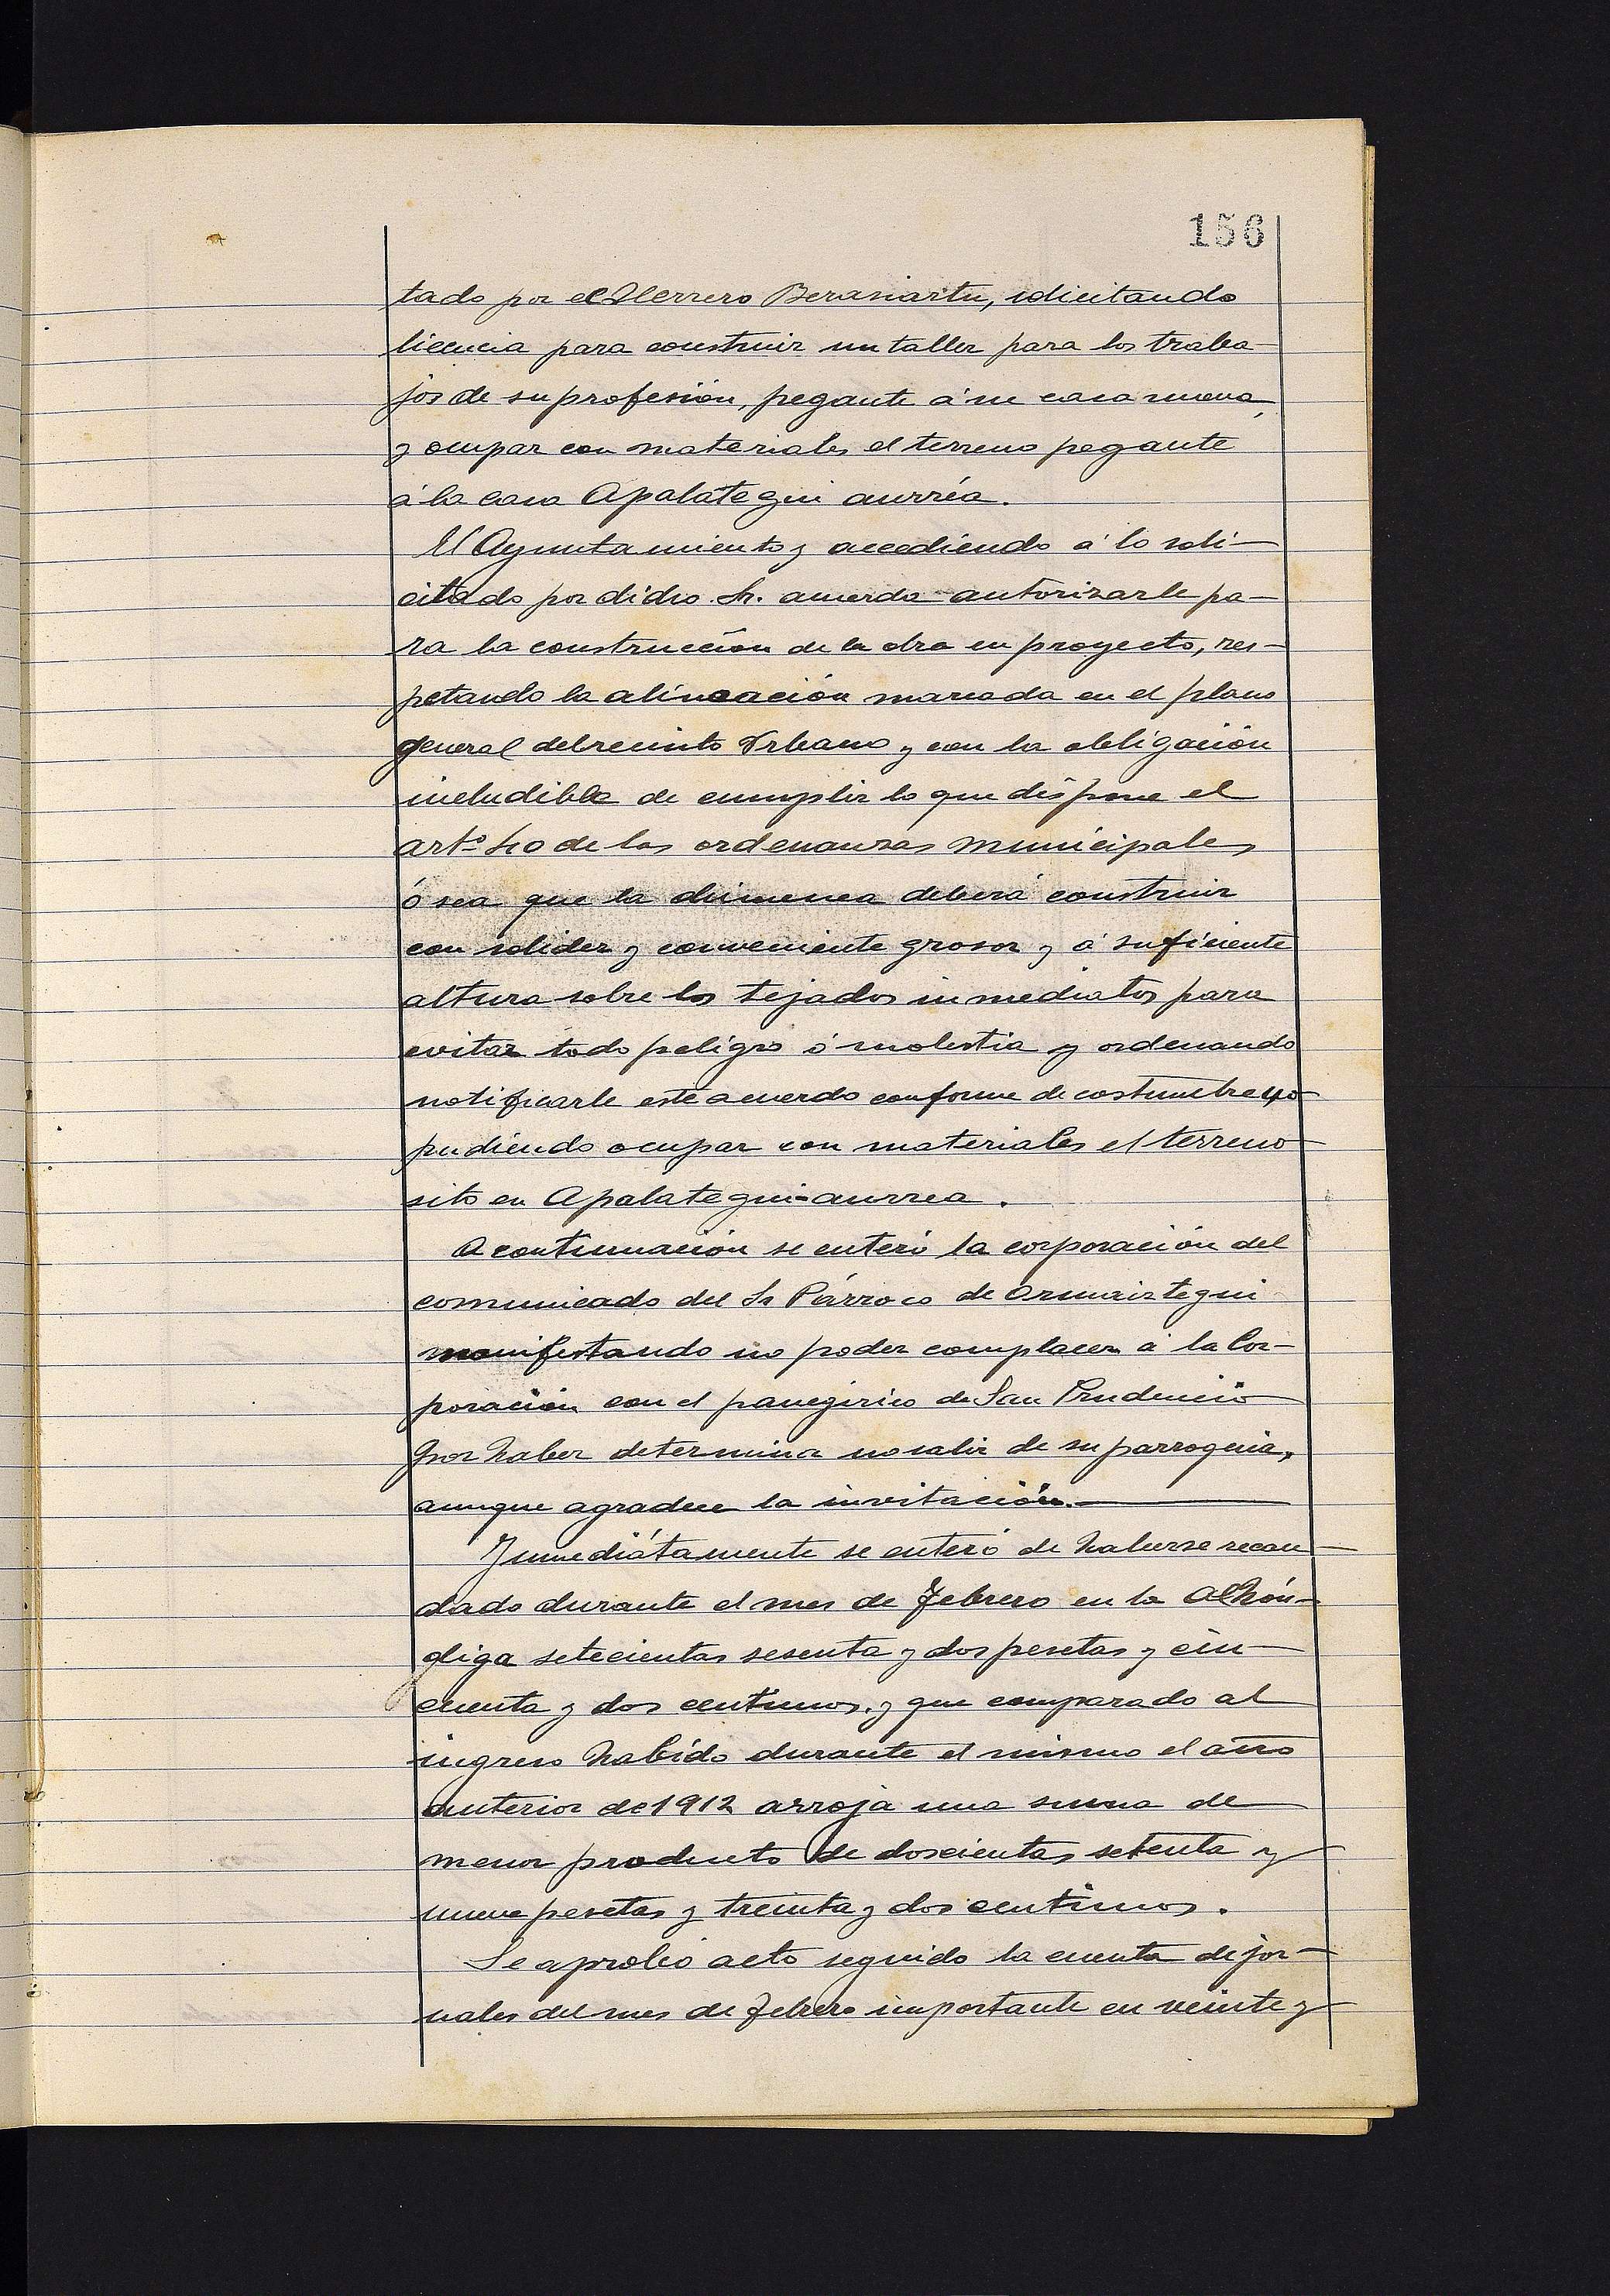 156
tado por el Herrero Berasiartu, solicitando
licencia para construir un taller para los traba-
jos de su profesión, pegante á su casa nueva,
y ocupar con materiales el terreno pegante
á la casa Apalategui aurréa.
El Ayuntamiento y accediendo á lo soli-
citado por dicho Sr. acuerda autorizarle pa-
ra la construcción de la obra en proyecto, res-
petando la alineación marcada en el plano
general del recinto Urbano y con la obligación
ineludible de cumplir lo que dispone el
artº 40 de las ordenanzas municipales
ó sea que la chimenea deberá construir
con solidez y conveniente grosor y á suficiente
altura sobre los tejados inmediatos para
evitar todo peligro ó molestia y ordenando
notificarle este acuerdo conforme de costumbre y no
pudiendo ocupar con materiales el terreno
sito en Apalategui-aurrea.
A continuación se enteró la corporación del
comunicado del Sr Párroco de Ormaiztegui
manifestando no poder complacer á la Cor-
poración con el panegirico de San Prudencio
por haber determina no salir de su parroquia,
aunque agradece la invitación.
Inmediátamente se enteró de haberse recau-
dado durante el mes de Febrero en la Alhón-
diga setecientas sesenta y dos pesetas y cin-
cuenta y dos centimos. y que comparado al
ingreso habido durante el mismo el año
anterior de 1912 arroja una suma de
menor producto de doscientas setenta y
nueve pesetas y treinta y dos centimos.
Se aprobó acto seguido la cuenta de jor-
nales del mes de Febrero importante en veinte y